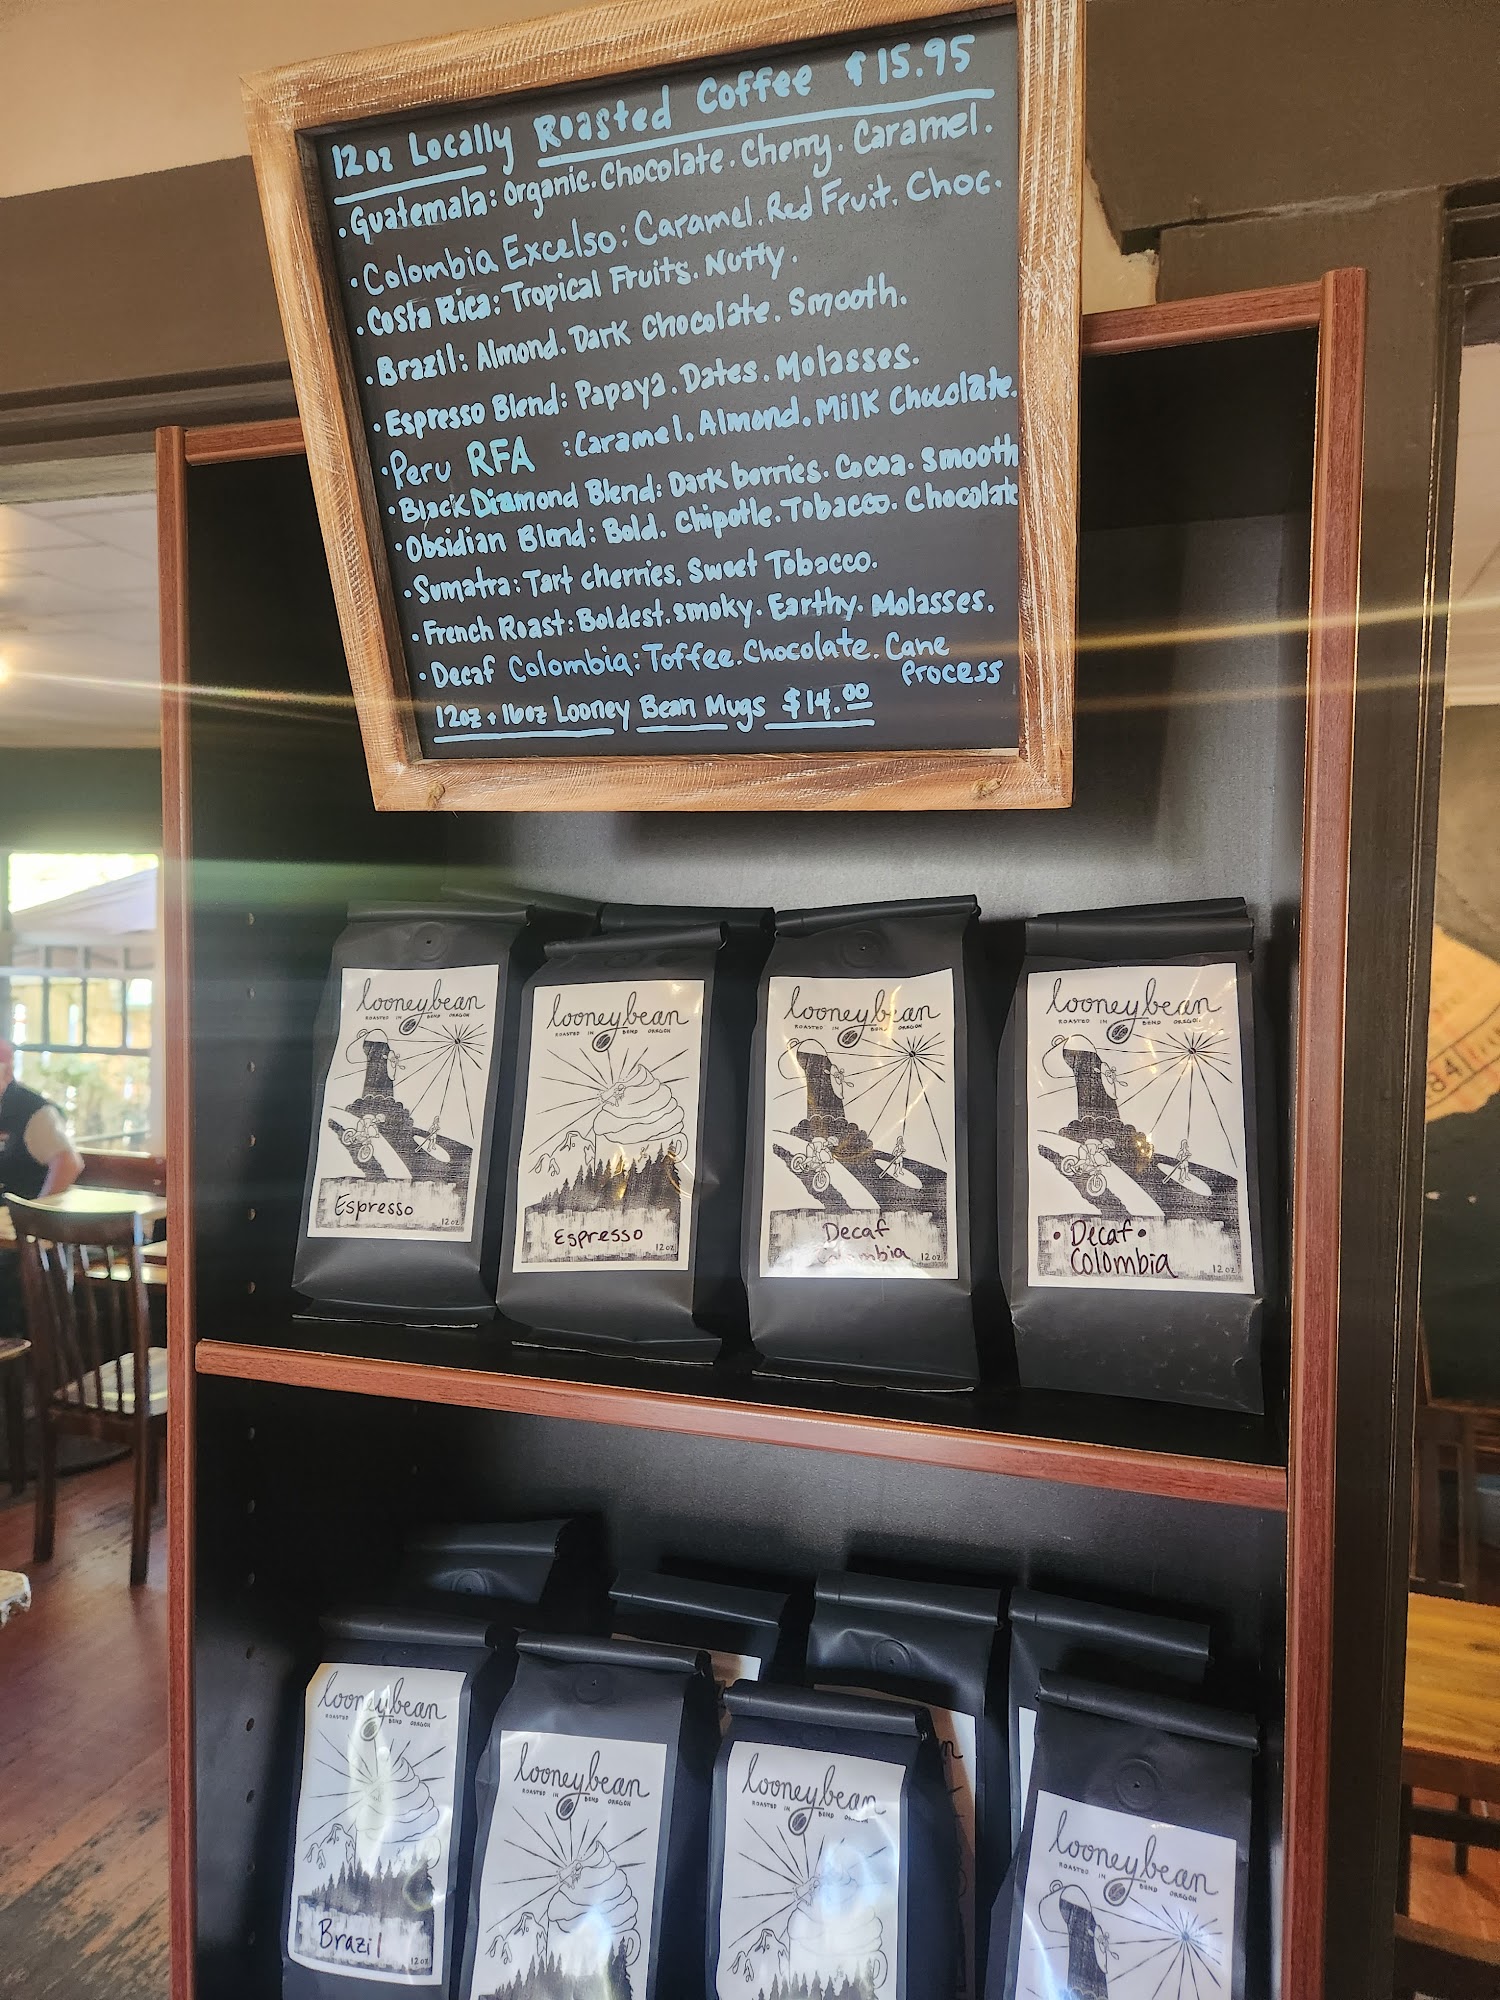 12oz Locally Roasted Coffee $15.95
• Guatemala: Organic. Chocolate. Cherry. Caramel.
• Colombia Excelso: Caramel. Red Fruit. Choc.
• Costa Rica: Tropical Fruits. Nutty.
• Brazil: Almond. Dark Chocolate. Smooth.
• Espresso Blend: Papaya. Dates. Molasses.
• Peru RFA : Caramel. Almond. Milk Chocolate.
• Black Diamond Blend: Dark berries. Cocoa. Smooth
• Obsidian Blend: Bold. Chipotle. Tobacco. Chocolate
• Sumatra: Tart cherries. Sweet Tobacco.
• French Roast: Boldest. smoky. Earthy. Molasses.
• Decaf Colombia: Toffee. Chocolate. Cane
Process
12oz + 16oz Looney Bean Mugs $14.00
looneybean
ROASTED IN BEND OREGON
Espresso
12 oz
looneybean
ROASTED IN BEND OREGON
Espresso
12 oz
looneybean
ROASTED IN BEND OREGON
Decaf
Colombia
12 oz
looneybean
ROASTED IN BEND OREGON
• Decaf •
Colombia
12 oz
looneybean
ROASTED IN BEND OREGON
Brazil
12 oz
looneybean
ROASTED IN BEND OREGON
looneybean
ROASTED IN BEND OREGON
looneybean
ROASTED IN BEND OREGON